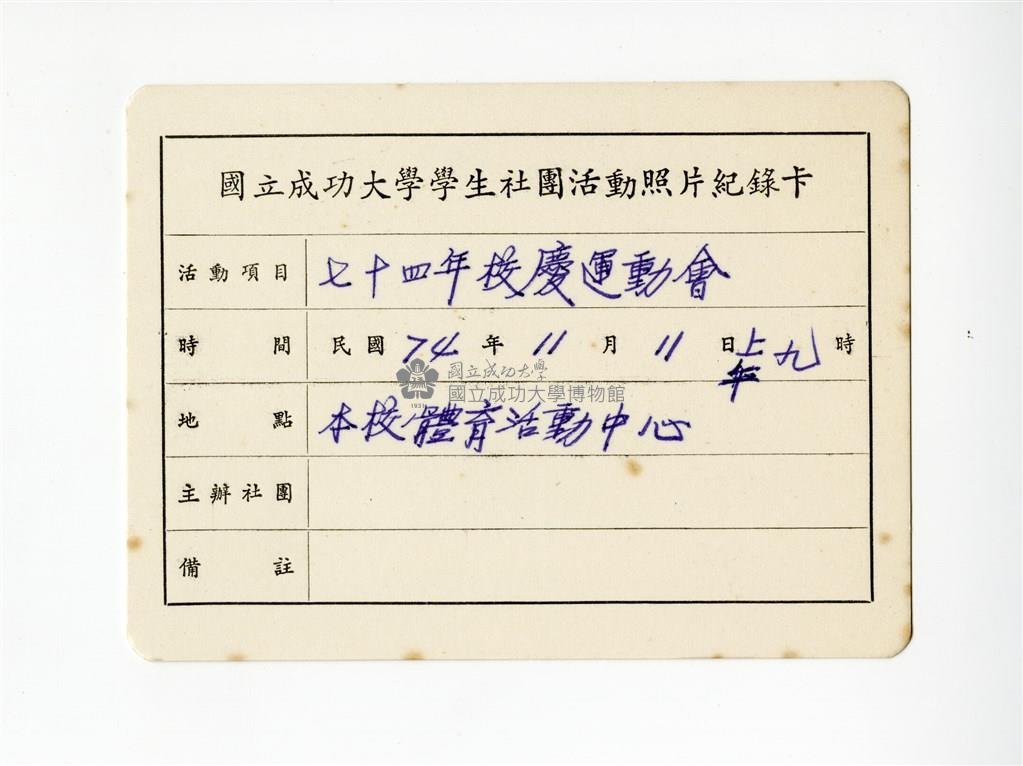 國立成功大學學生社團活動照片紀錄卡
活動項目 七十四年校慶運動會
時間 民國 74 年 11 月 11 日 上午九 時
國立成功大學
國立成功大學博物館
1931
地點 本校體育活動中心
主辦社團
備註